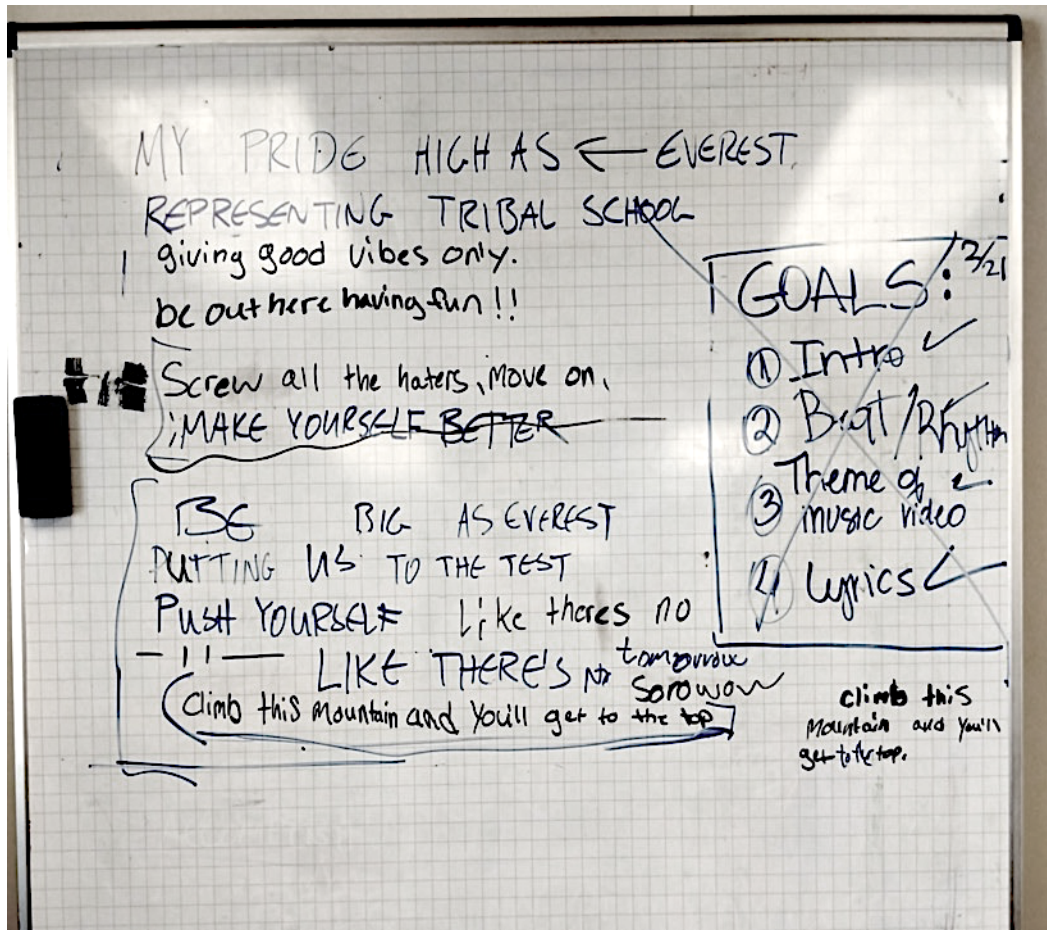 MY PRIDE HIGH AS ← EVEREST
REPRESENTING TRIBAL SCHOOL
giving good vibes only.
be out here having fun!!
Screw all the haters, move on,
MAKE YOURSELF BETTER
BE BIG AS EVEREST
PUTTING US TO THE TEST
PUSH YOURSELF like theres no
tomorrow
— 11 — LIKE THERE'S no
sorowow
(Climb this mountain and you'll get to the top
GOALS: 2/21
① Intro ✓
② Beat/Rhythm ✓
③ Theme of ✓
music video
④ Lyrics ✓
climb this
mountain and you'll
get to the top.